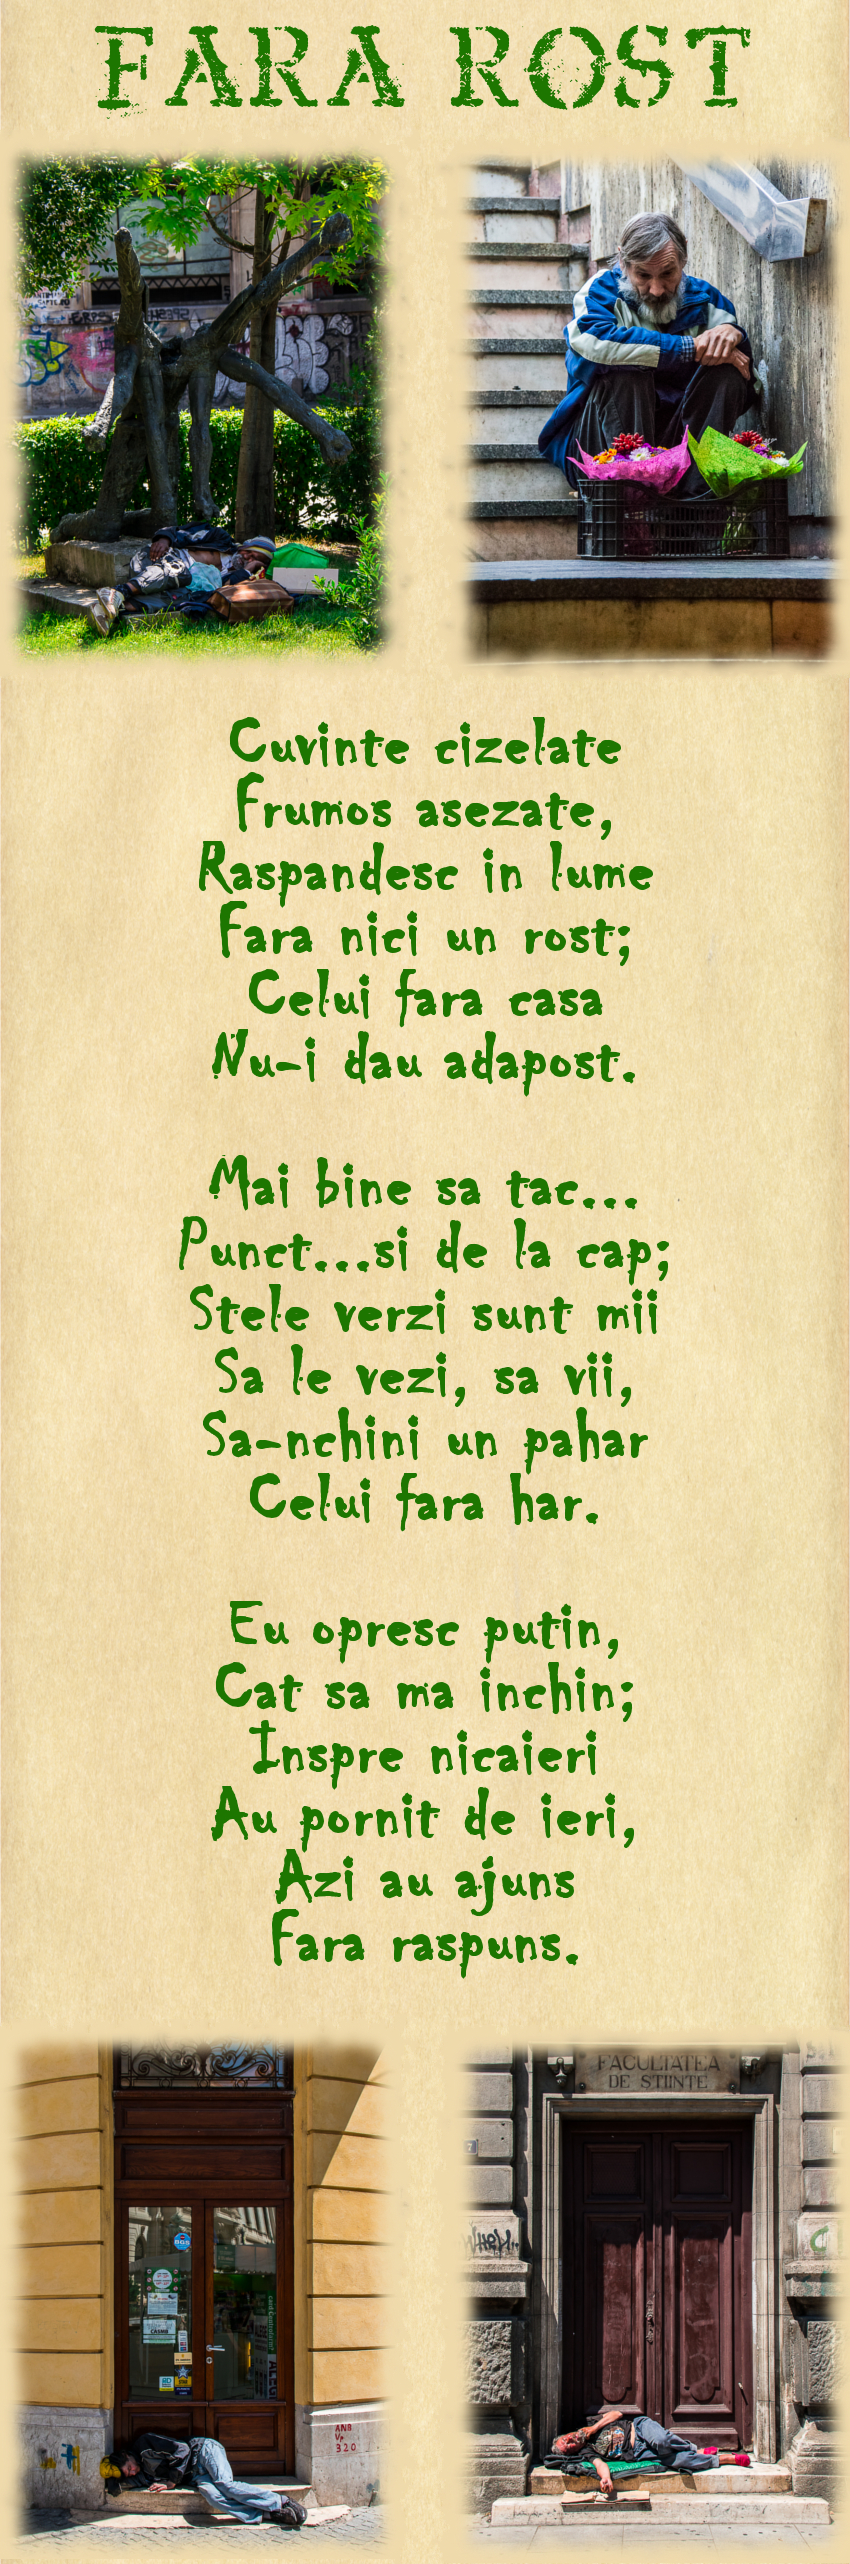 FARA ROST
Cuvinte cizelate
Frumos asezate,
Raspandesc in lume
Fara nici un rost;
Celui fara casa
Nu-i dau adapost.
Mai bine sa tac...
Punct...si de la cap;
Stele verzi sunt mii
Sa le vezi, sa vii,
Sa-nchini un pahar
Celui fara har.
Eu opresc putin,
Cat sa ma inchin;
Inspre nicaieri
Au pornit de ieri,
Azi au ajuns
Fara raspuns.
ANB
320
FACULTATEA
DE STIINTE